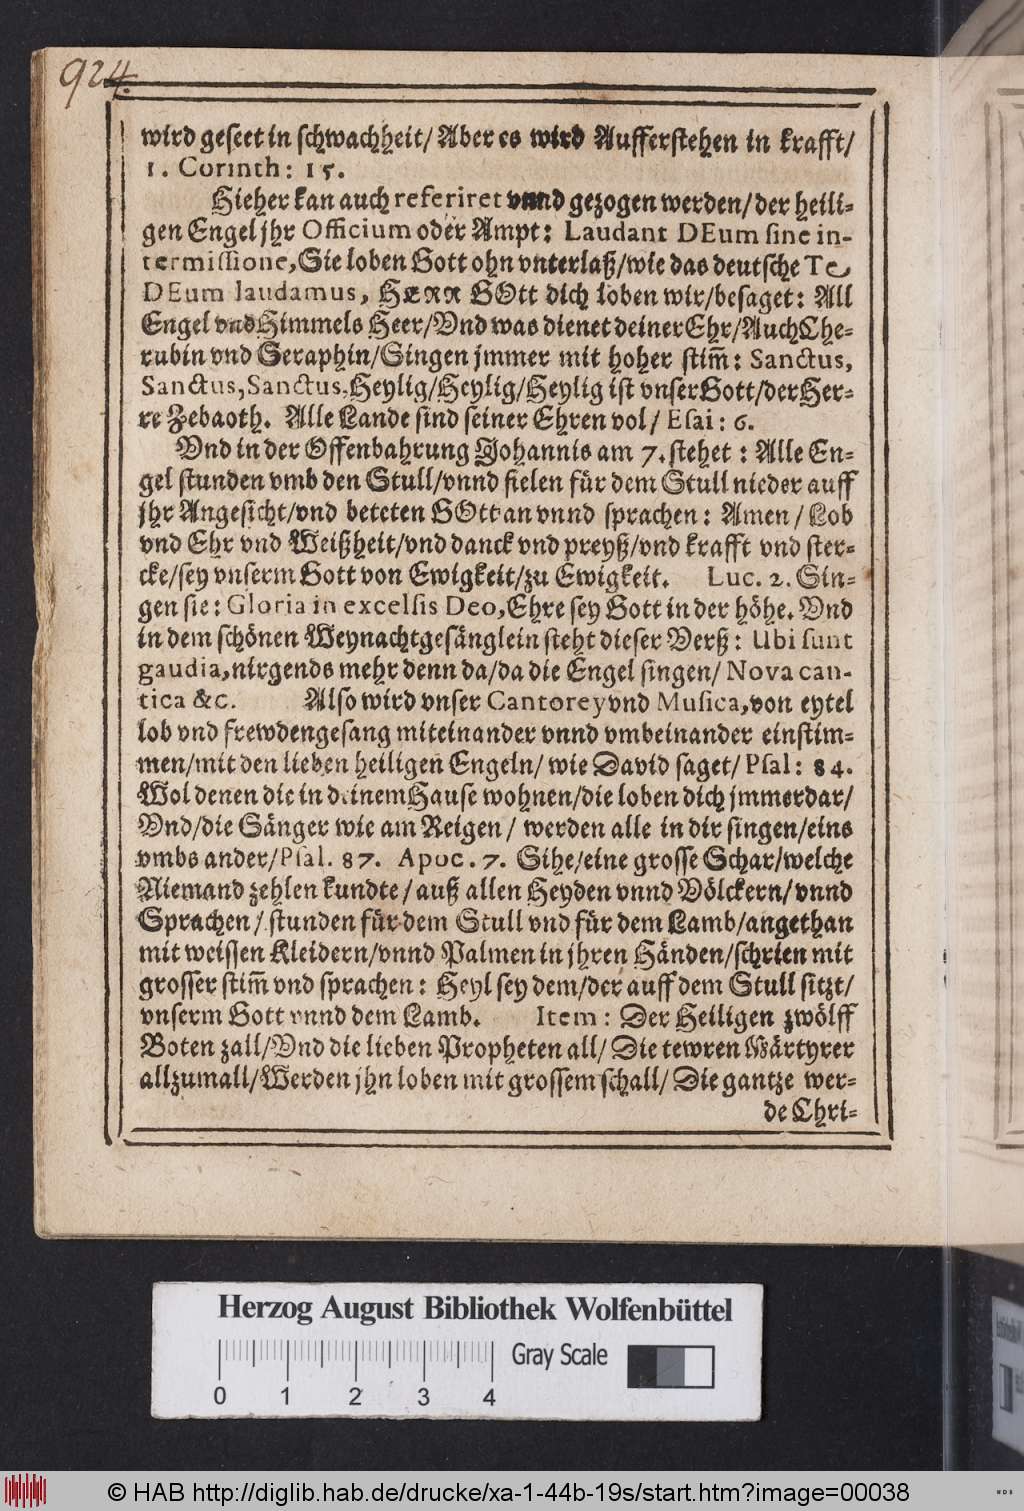 924.
wird geseet in schwachheit/ Aber es wird Aufferstehen in krafft/
1. Corinth: 15.
Hieher kan auch referiret vnnd gezogen werden/ der heili-
gen Engel jhr Officium oder Ampt: Laudant DEum sine in-
termissione, Sie loben Gott ohn vnterlaß/ wie das deutsche Te
DEum laudamus, HERR GOtt dich loben wir/ besaget: All
Engel vnd Himmels Heer/ Vnd was dienet deiner Ehr/ Auch Che-
rubin vnd Seraphin/ Singen jmmer mit hoher stim̃: Sanctus,
Sanctus, Sanctus, Heylig/ Heylig/ Heylig ist vnser Gott/ der Her-
re Zebaoth. Alle Lande sind seiner Ehren vol/ Esai: 6.
Vnd in der Offenbahrung Johannis am 7. stehet: Alle En-
gel stunden vmb den Stull/ vnnd fielen für dem Stull nieder auff
jhr Angesicht/ vnd beteten GOtt an vnnd sprachen: Amen/ Lob
vnd Ehr vnd Weißheit/ vnd danck vnd preyß/ vnd krafft vnd ster-
cke/ sey vnserm Gott von Ewigkeit/ zu Ewigkeit. Luc. 2. Sin-
gen sie: Gloria in excelsis Deo, Ehre sey Gott in der höhe. Vnd
in dem schönen Weynachtgesänglein steht dieser Verß: Ubi sunt
gaudia, nirgends mehr denn da/ da die Engel singen/ Nova can-
tica &c. Also wird vnser Cantorey vnd Musica, von eytel
lob vnd frewdengesang miteinander vnnd vmbeinander einstim-
men/ mit den lieben heiligen Engeln/ wie David saget/ Psal: 84.
Wol denen die in deinem Hause wohnen/ die loben dich jmmerdar/
Vnd/ die Sänger wie am Reigen/ werden alle in dir singen/ eins
vmbs ander/ Psal. 87. Apoc. 7. Sihe/ eine grosse Schar/ welche
Niemand zehlen kundte/ auß allen Heyden vnnd Völckern/ vnnd
Sprachen/ stunden für dem Stull vnd für dem Lamb/ angethan
mit weissen Kleidern/ vnnd Palmen in jhren Händen/ schrien mit
grosser stim̃ vnd sprachen: Heyl sey dem/ der auff dem Stull sitzt/
vnserm Gott vnnd dem Lamb. Item: Der Heiligen zwölff
Boten zall/ Vnd die lieben Propheten all/ Die tewren Märtyrer
allzumall/ Werden jhn loben mit grossem schall/ Die gantze wer-
de Chri-
Herzog August Bibliothek Wolfenbüttel
Gray Scale
0 1 2 3 4
© HAB http://diglib.hab.de/drucke/xa-1-44b-19s/start.htm?image=00038